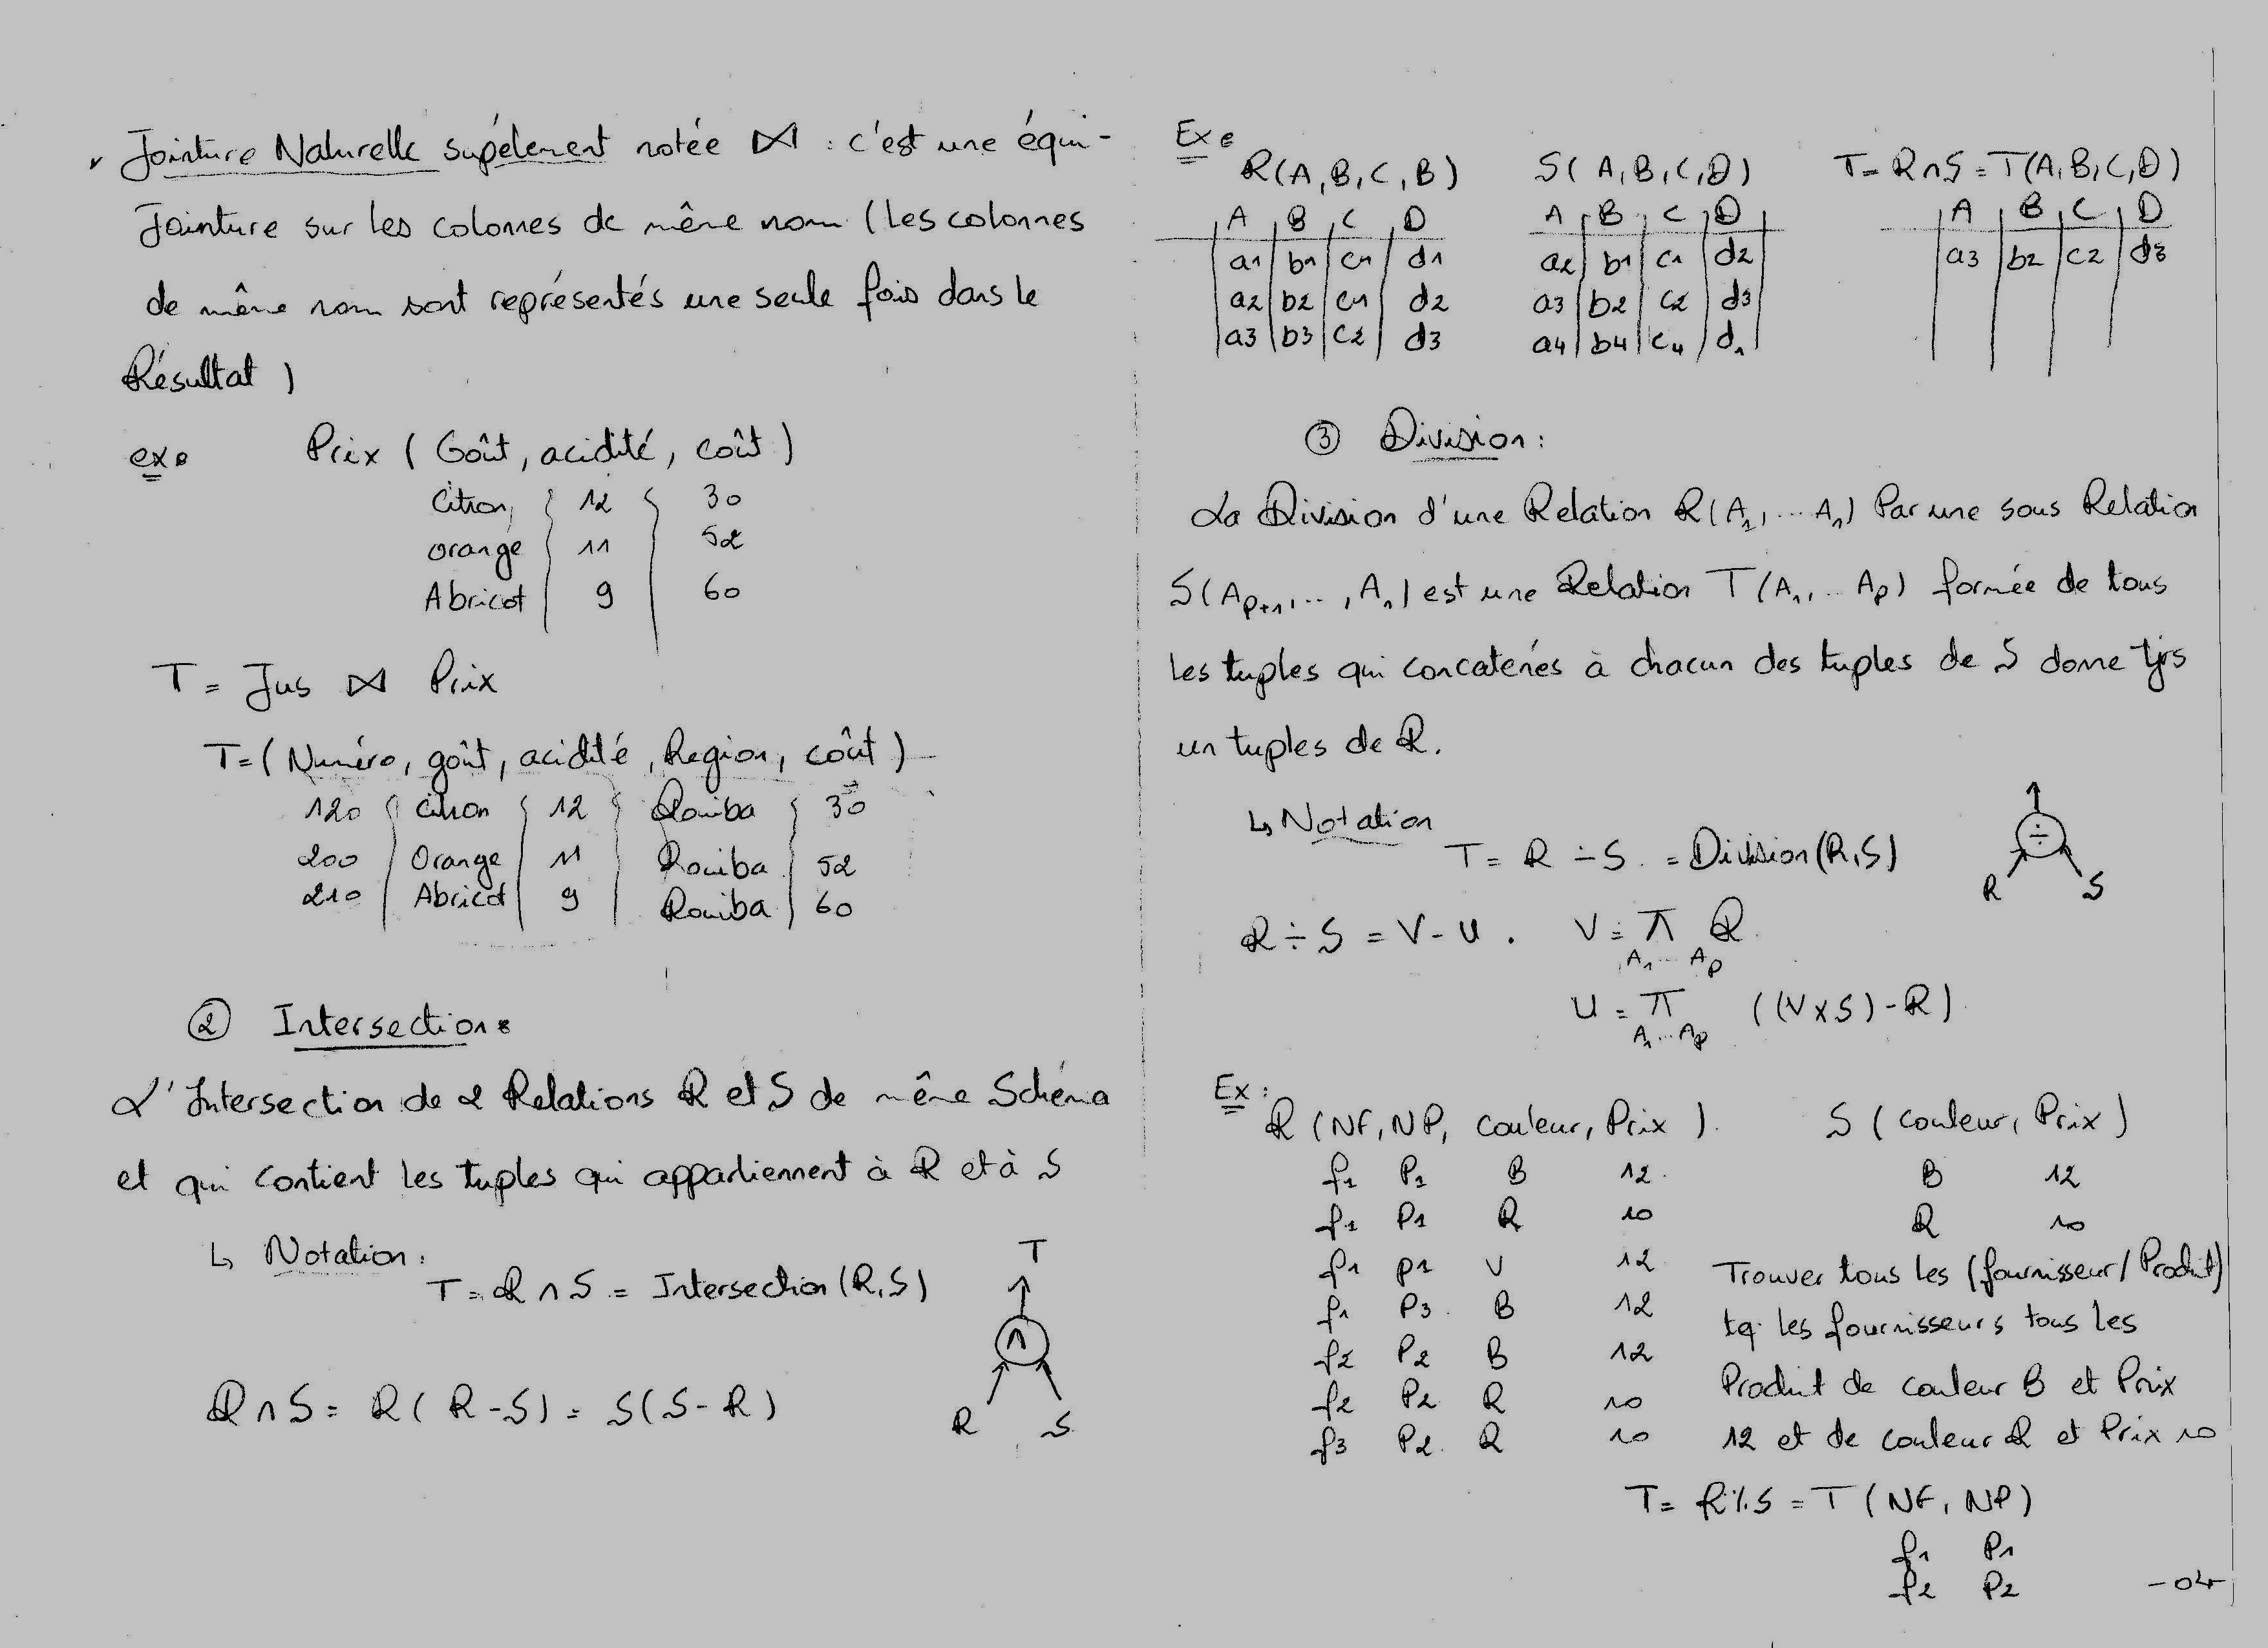 Jointure Naturelle supélement notée ⋈ : c'est une équi-
Jointure sur les colonnes de même nom (les colonnes
de même nom sont représentés une seule fois dans le
Résultat )
ex: Prix ( Goût, acidité, coût )
Citron 12 30
orange 11 52
Abricot 9 60
T = Jus ⋈ Prix
T = ( Numéro, goût, acidité, Region, coût )
120 Citron 12 Rouiba 30
200 Orange 11 Rouiba 52
210 Abricot 9 Rouiba 60
② Intersection:
L'Intersection de 2 Relations R et S de même Schéma
et qui contient les tuples qui appartiennent à R et à S
↳ Notation:
T = R ∩ S = Intersection (R,S)
T
∩
R S
R ∩ S = R ( R - S ) = S ( S - R )
Ex:
R(A,B,C,B) S(A,B,C,D) T = R∩S = T(A,B,C,D)
A B C D A B C D A B C D
a1 b1 c1 d1 a2 b1 c1 d2 a3 b2 c2 d3
a2 b2 c1 d2 a3 b2 c2 d3
a3 b3 c2 d3 a4 b4 c4 d1
③ Division:
La Division d'une Relation R(A1, ... An) Par une sous Relation
S(Ap+1, .., An) est une Relation T(A1, .. Ap) formée de tous
les tuples qui concatenés à chacun des tuples de S donne tjrs
un tuples de R.
↳ Notation
T = R ÷ S. = Division (R,S)
÷
R S
R ÷ S = V - U . V = π R.
A1 ... Ap
U = π ((V x S) - R).
A1 ... Ap
Ex:
R (NF, NP, couleur, Prix ). S ( couleur, Prix )
f1 P1 B 12. B 12
f1 P1 R 10 R 10
f1 p1 V 12
f1 P3. B 12
f2 P2 B 12
f2 P2 R 10
f3 P2. R 10
Trouver tous les (fournisseur / Produit)
tq. les fournisseurs tous les
Produit de couleur B et Prix
12 et de couleur R et Prix 10
T = R % S = T ( NF, NP )
f1 P1
f2 P2
-04-